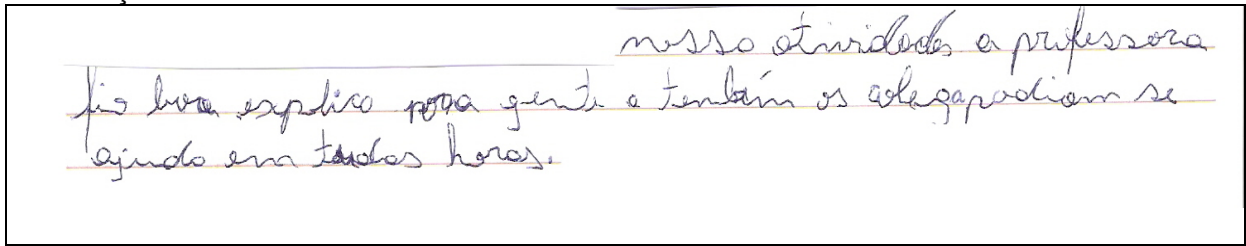 nosso atividades a professora
fio boa esplico poga gente e tenbém os colegapodiam se
ajudo em tudas horas.